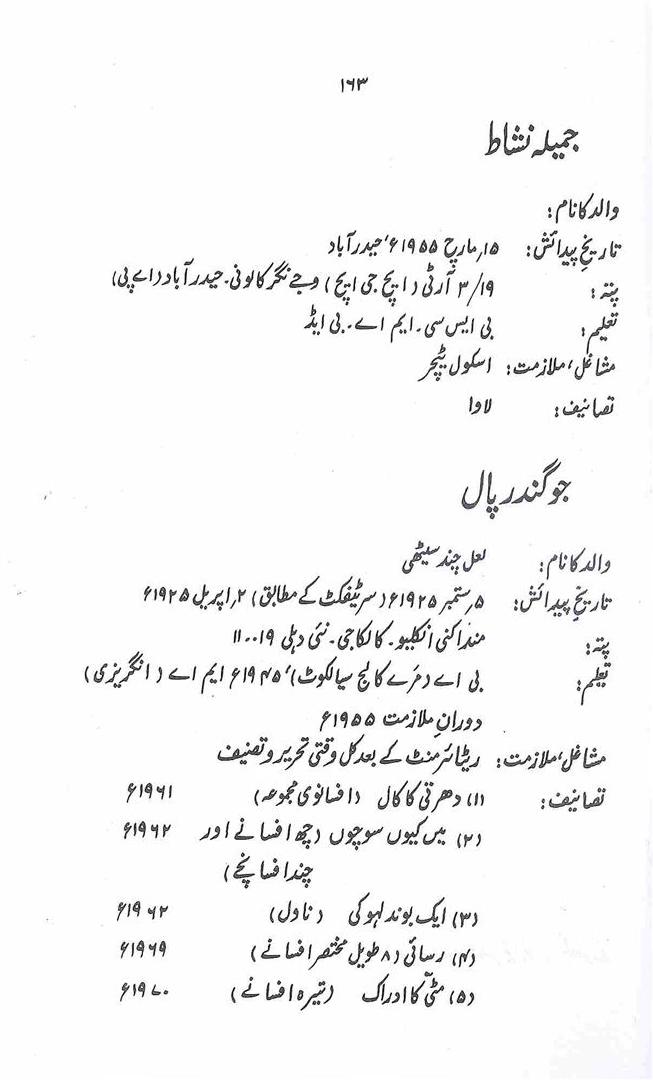 ۱۶۳
جمیلہ نشاط
والد کا نام:
تاریخِ پیدائش: ۱۵؍مارچ ۱۹۵۵ء، حیدرآباد
پتہ: ۳/۱۹ آرٹی (ایچ جی ایچ) وجے نگر کالونی۔ حیدرآباد (اے پی)
تعلیم: بی ایس سی۔ ایم اے۔ بی ایڈ
مشاغل، ملازمت: اسکول ٹیچر
تصانیف: لاوا
جوگندر پال
والد کا نام: لعل چند سیٹھی
تاریخِ پیدائش: ۵؍ستمبر ۱۹۲۵ء (سرٹیفکٹ کے مطابق) ۲؍اپریل ۱۹۲۵ء
پتہ: منداکنی انکلیو۔ کالکاجی۔ نئی دہلی ۱۱۰۰۱۹
تعلیم: بی اے (مرے کالج سیالکوٹ)، ۱۹۴۵ء ایم اے (انگریزی)
دورانِ ملازمت ۱۹۵۵ء
مشاغل، ملازمت: ریٹائرمنٹ کے بعد کل وقتی تحریر و تصنیف
تصانیف: (۱) دھرتی کا کال (افسانوی مجموعہ) ۱۹۶۱ء
(۲) میں کیوں سوچوں (چھ افسانے اور ۱۹۶۲ء
چند افسانچے)
(۳) ایک بوند لہو کی (ناول) ۱۹۶۲ء
(۴) رسائی (۸ طویل مختصر افسانے) ۱۹۶۹ء
(۵) مٹی کا ادراک (تیرہ افسانے) ۱۹۷۰ء